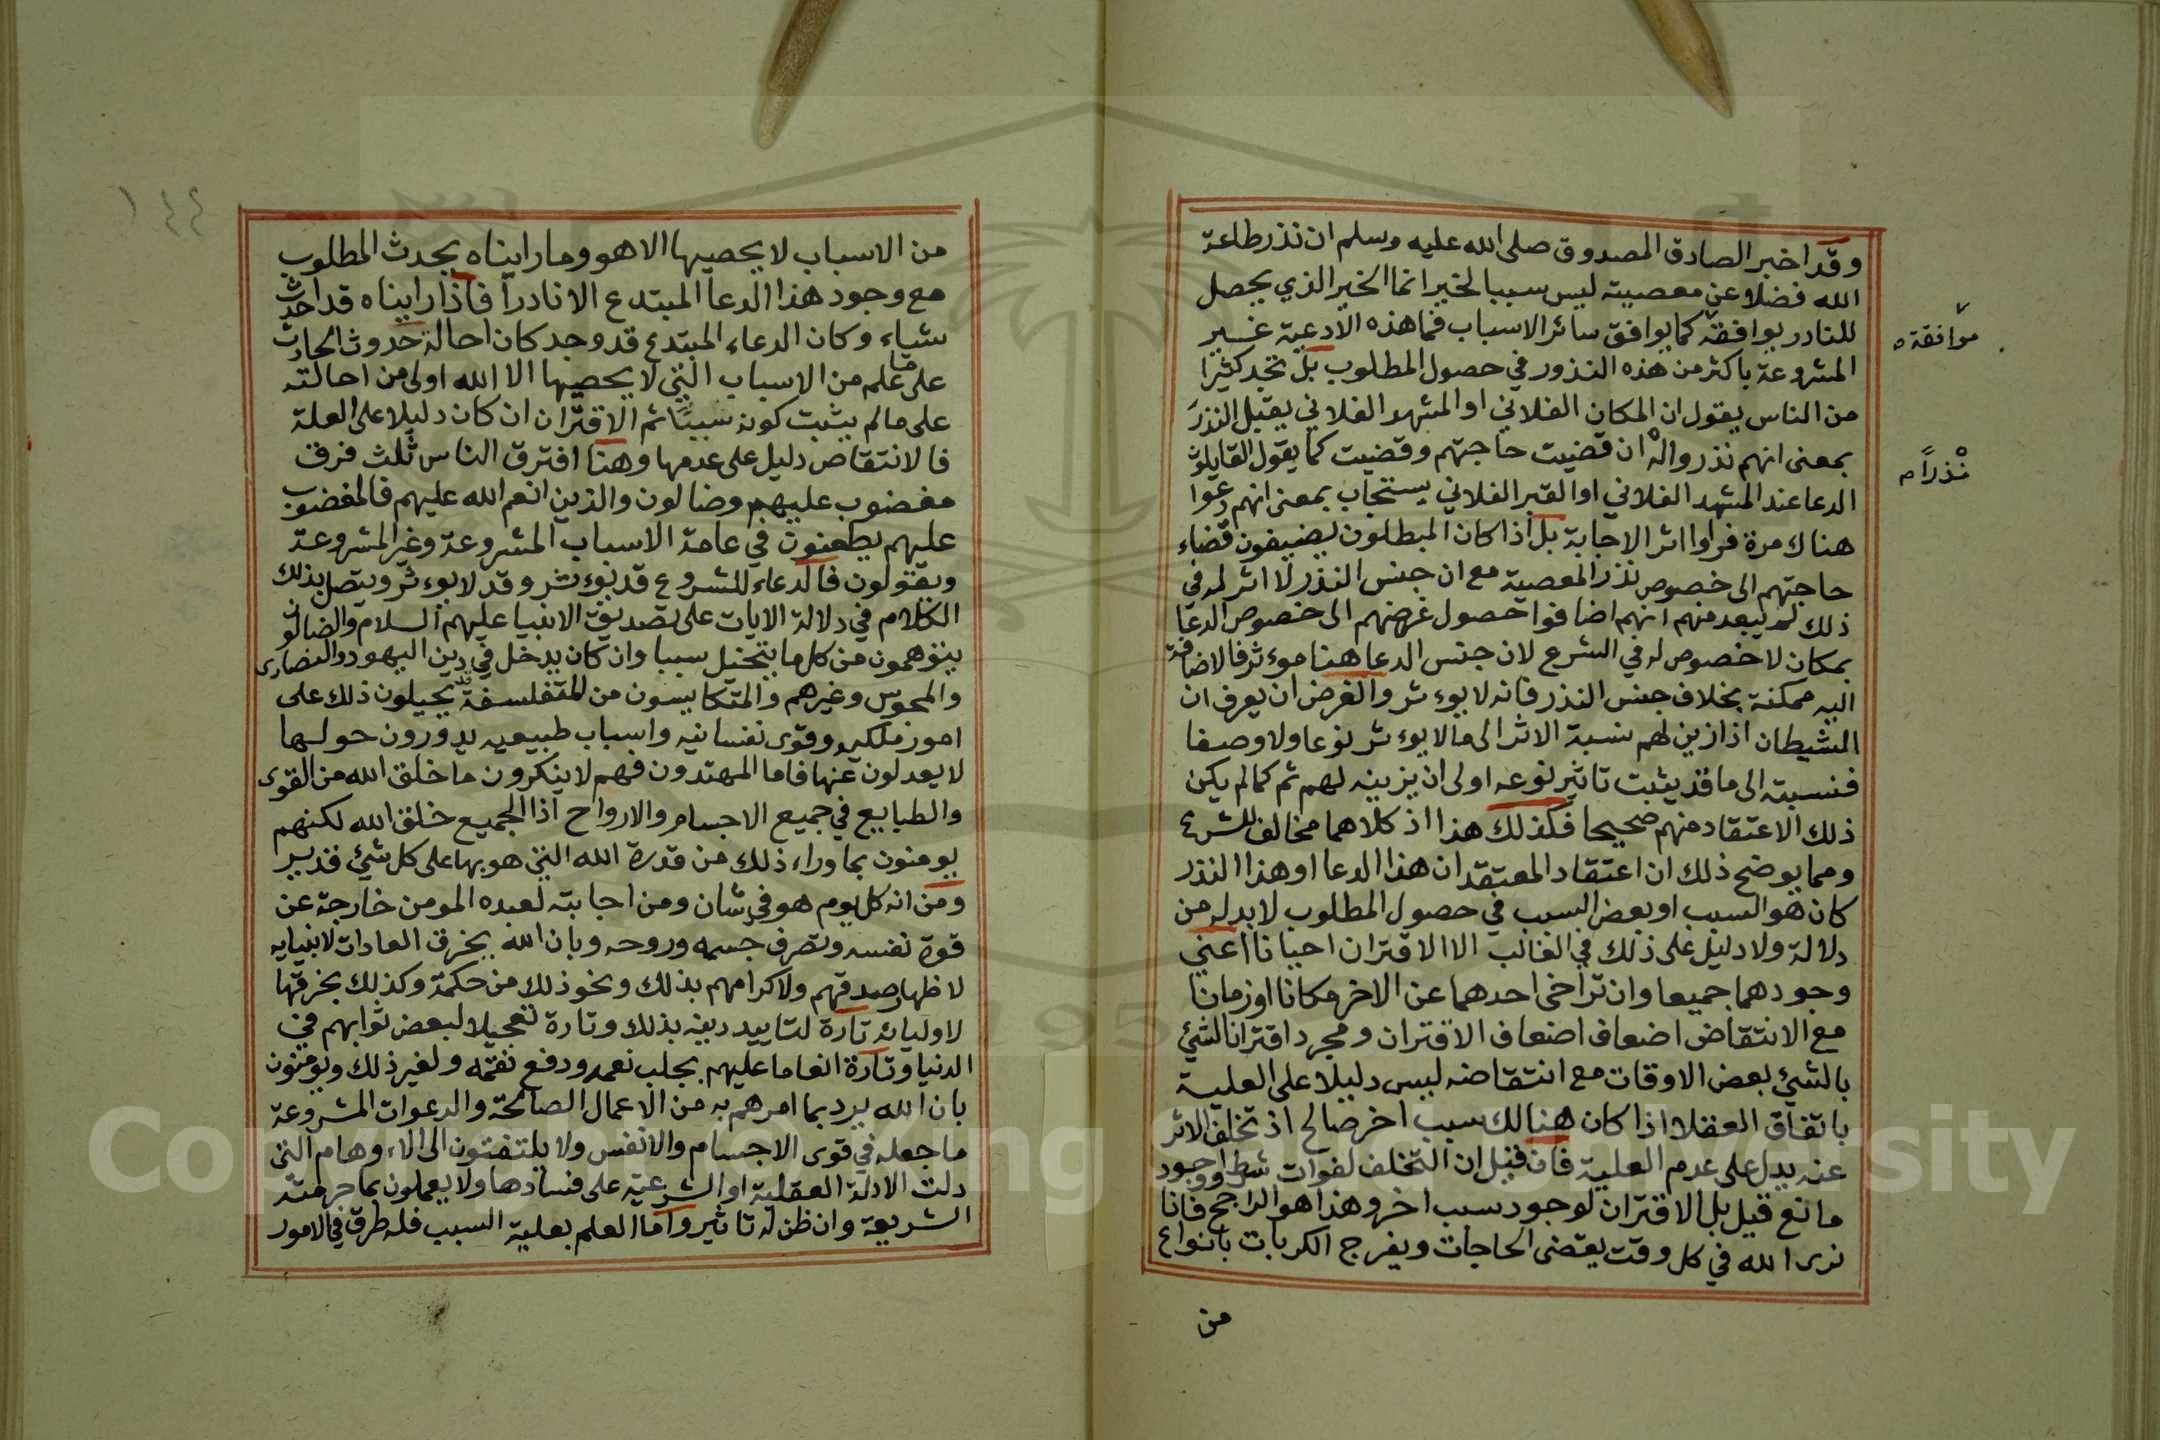 وقد اخبر الصادق المصدوق صلى الله عليه وسلم ان نذر طاعة
الله فضلا عن معصيته ليس سببا لخير انما الخير الذي يحصل
للنادر يوافقه كما يوافق سائر الاسباب فما هذه الادعية غير
موافقة ه
المشروعة باكثر من هذه النذور في حصول المطلوب بل تجد كثيرا
من الناس يقول ان المكان الفلاني او المشهد الفلاني يقبل النذر
بمعنى انهم نذروا له ان قضيت حاجتهم وقضيت كما يقول القايلون
نذراً م
الدعا عند المشهد الفلاني او القبر الفلاني يستجاب بمعنى انهم دعوا
هناك مرة فراوا اثر الاجابة بل اذا كان المبطلون يضيفون قضاء
حاجتهم الى خصوص نذر المعصية مع ان جنس النذر لا اثر له في
ذلك لم يبعد منهم انهم اضافوا حصول غرضهم الى خصوص الدعا
بمكان لا خصوص له في الشرع لان جنس الدعا هنا موءثر فالاضافة
اليه ممكنة بخلاف جنس النذر فانه لا يوءثر والغرض ان يعرف ان
الشيطان اذا زين لهم نسبة الاثر الى ما لا يوءثر نوعا ولا وصفا
فنسبته الى ما قد يثبت تاثير نوعه اولى ان يزينه لهم ثم كما لم يكن
ذلك الاعتقاد منهم صحيحا فكذلك هذا اذ كلاهما مخالف للشرع
ومما يوضح ذلك ان اعتقاد المعتقد ان هذا الدعا او هذا النذر
كان هو السبب او بعض السبب في حصول المطلوب لا بد له من
دلالة ولا دليل على ذلك في الغالب الا الاقتران احيانا اعني
وجودهما جميعا وان تراخى احدهما عن الاخر مكانا او زمانا
مع الانتقاض اضعاف اضعاف الاقتران ومجرد اقتران الشيئ
بالشيئ بعض الاوقات مع انتقاضه ليس دليلا على العلية
باتفاق العقلا اذا كان هنالك سبب اخر صالح اذ تخلف الاثر
عنه يدل على عدم العلية فان قيل ان التخلف لفوات شرط او وجود
مانع قيل بل الاقتران لوجود سبب اخر وهذا هو الراجح فانا
نرى الله في كل وقت يقضى الحاجات ويفرج الكربات بانواع
من
١٤٤
من الاسباب لا يحصيها الا هو وما رايناه يحدث المطلوب
مع وجود هذا الدعا المبتدع الا نادرا فاذا رايناه قد احدث
شياء وكان الدعاء المبتدع قد وجد كان احالة حدوث الحادث
على ما علم من الاسباب التي لا يحصيها الا الله اولى من احالته
على ما لم يثبت كونه سبباً ثم الاقتران ان كان دليلا على العلة
فالانتقاص دليل على عدمها وهنا افترق الناس ثلث فرق
مغضوب عليهم وضالون والذين انعم الله عليهم فالمغضوب
عليهم يطعنون في عامة الاسباب المشروعة وغير المشروعة
ويقولون فالدعاء المشروع قد يوءثر وقد لا يوءثر ويتصل بذلك
الكلام في دلالة الايات على تصديق الانبيا عليهم السلام والضالون
يتوهمون من كل ما يتخيل سببا وان كان يدخل في دين اليهود والنصارى
والمجوس وغيرهم والمتكايسون من المتفلسفة يحيلون ذلك على
امور ملكيه وقوى نفسانيه واسباب طبيعيه يدورون حولها
لا يعدلون عنها فاما المهتدون فهم لا ينكرون ما خلق الله من القوى
والطبايع في جميع الاجسام والارواح اذ الجميع خلق الله لكنهم
يومنون بما وراء ذلك من قدرة الله التي هو بها على كل شيئ قدير
ومن انه كل يوم هو في شان ومن اجابته لعبده المومن خارجة عن
قوة نفسه وتصرف جسمه وروحه وبان الله يخرق العادات لانبيايه
لاظهار صدقهم ولاكرامهم بذلك ونحو ذلك من حكمة وكذلك يخرقها
لاوليائه تارة لتاييد دينه بذلك وتارة تعجيلا لبعض ثوابهم في
الدنيا وتارة انعاما عليهم بجلب نعمه ودفع نقمه ولغير ذلك ويومنون
بان الله يرد بما امرهم به من الاعمال الصالحة والدعوات المشروعة
ما جعله في قوى الاجسام والانفس ولا يلتفتون الى الاوهام التي
دلت الادلة العقلية او الشرعية على فسادها ولا يعملون بما حرمته
الشريعة وان ظن له تاثير واما العلم بعلية السبب فله طرق في الامور